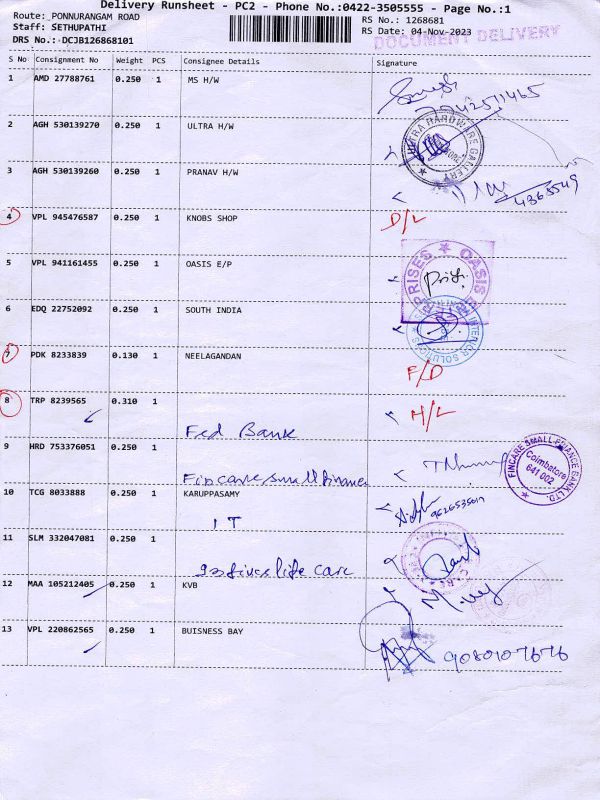 Delivery Runsheet - PC2 - Phone No.:0422-3505555 - Page No.:1
Route: PONNURANGAM ROAD
Staff: SETHUPATHI
DRS No.: DCJB126868101
RS No.: 1268681
RS Date: 04-Nov-2023
DOCUMENT DELIVERY
S No Consignment No Weight PCS Consignee Details Signature
1 AMD 27788761 0.250 1 MS H/W
2 AGH 530139270 0.250 1 ULTRA H/W
ULTRA HARDWARE GALLERY
3 AGH 530139260 0.250 1 PRANAV H/W
4 VPL 945476587 0.250 1 KNOBS SHOP D/L
5 VPL 941161455 0.250 1 OASIS E/P
OASIS
6 EDQ 22752092 0.250 1 SOUTH INDIA
INTERIOR SOLUTIONS
7 PDK 8233839 0.130 1 NEELAGANDAN F/D
8 TRP 8239565 0.310 1 H/L
Fed Bank
9 HRD 753376051 0.250 1
Fincare small finance
FINCARE SMALL FINANCE BANK LTD.
Coimbatore
641 002
10 TCG 8033888 0.250 1 KARUPPASAMY
IT
11 SLM 332047081 0.250 1
life care
12 MAA 105212405 0.250 1 KVB
13 VPL 220862565 0.250 1 BUISNESS BAY
9080107676